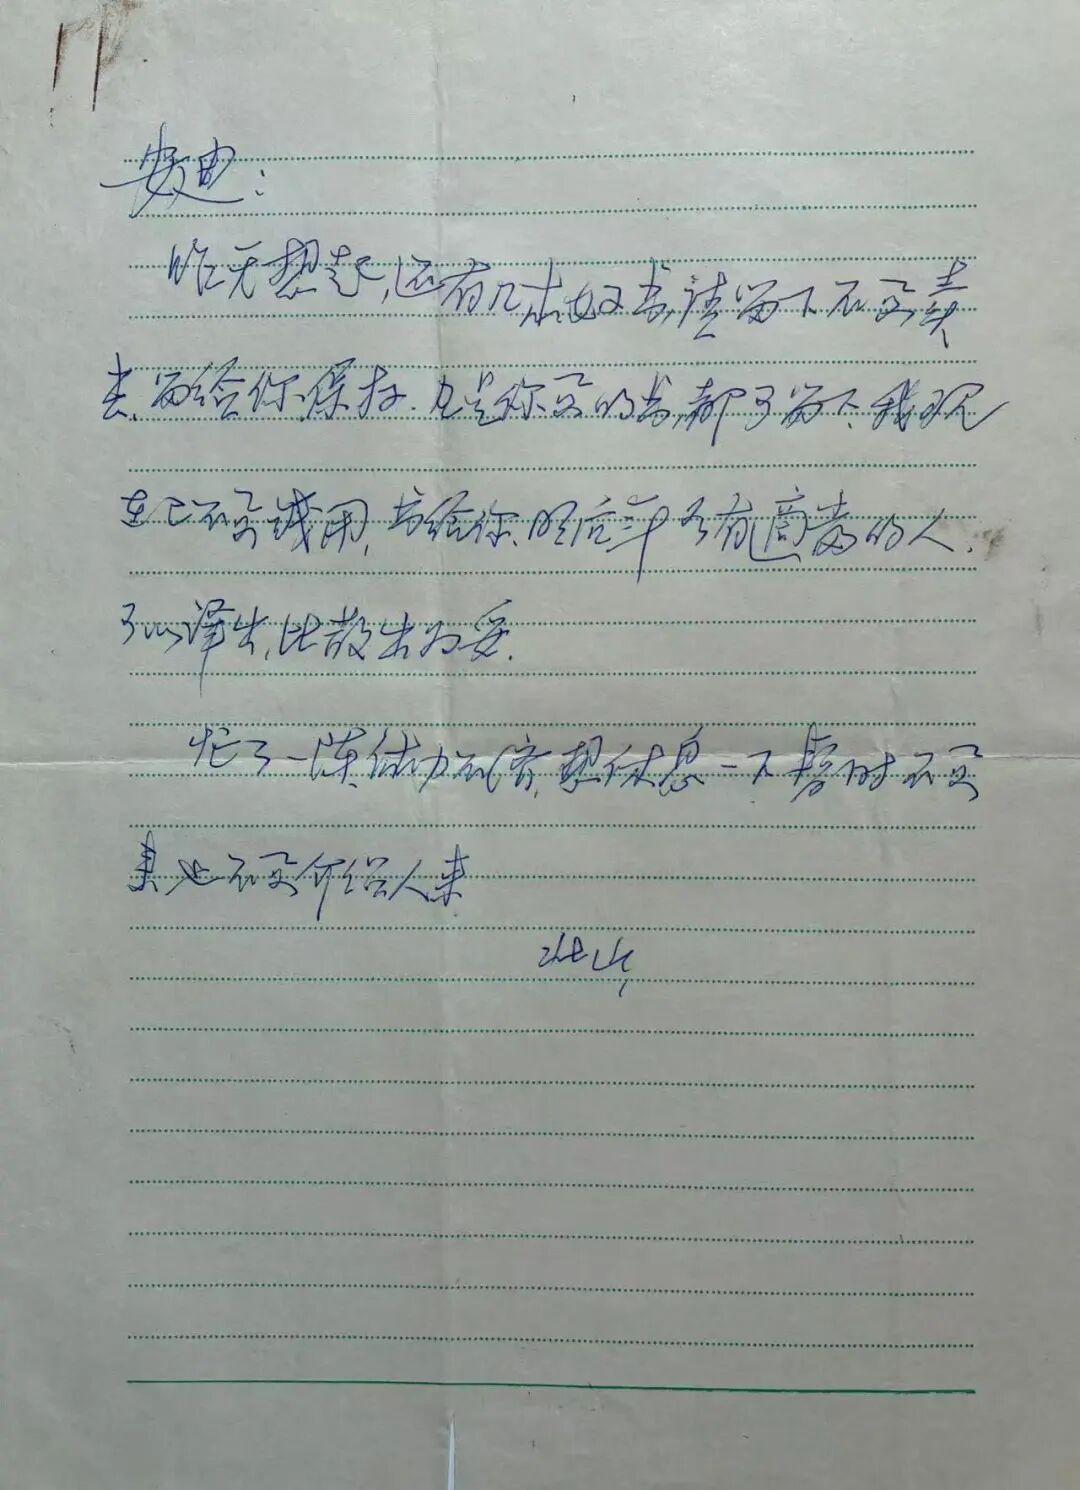 安迪：
昨天想起，还有几本好书，请留下不要卖
去，留给你保存．凡是你要的书，都可留下．我现
在已不需钱用，书给你，明后年如有适当的人，
可以译出，比散出为妥．
忙了一阵，体力不济，想休息一下，暂时不要
来，也不要介绍人来
北山